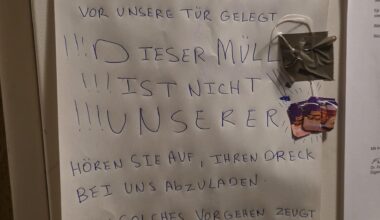 VOR UNSERE TÜR GELEGT
!!! DIESER MÜLL
!!! IST NICHT
!!! UNSERER
HÖREN SIE AUF, IHREN DRECK
BEI UNS ABZULADEN.
SOLCHES VORGEHEN ZEUGT